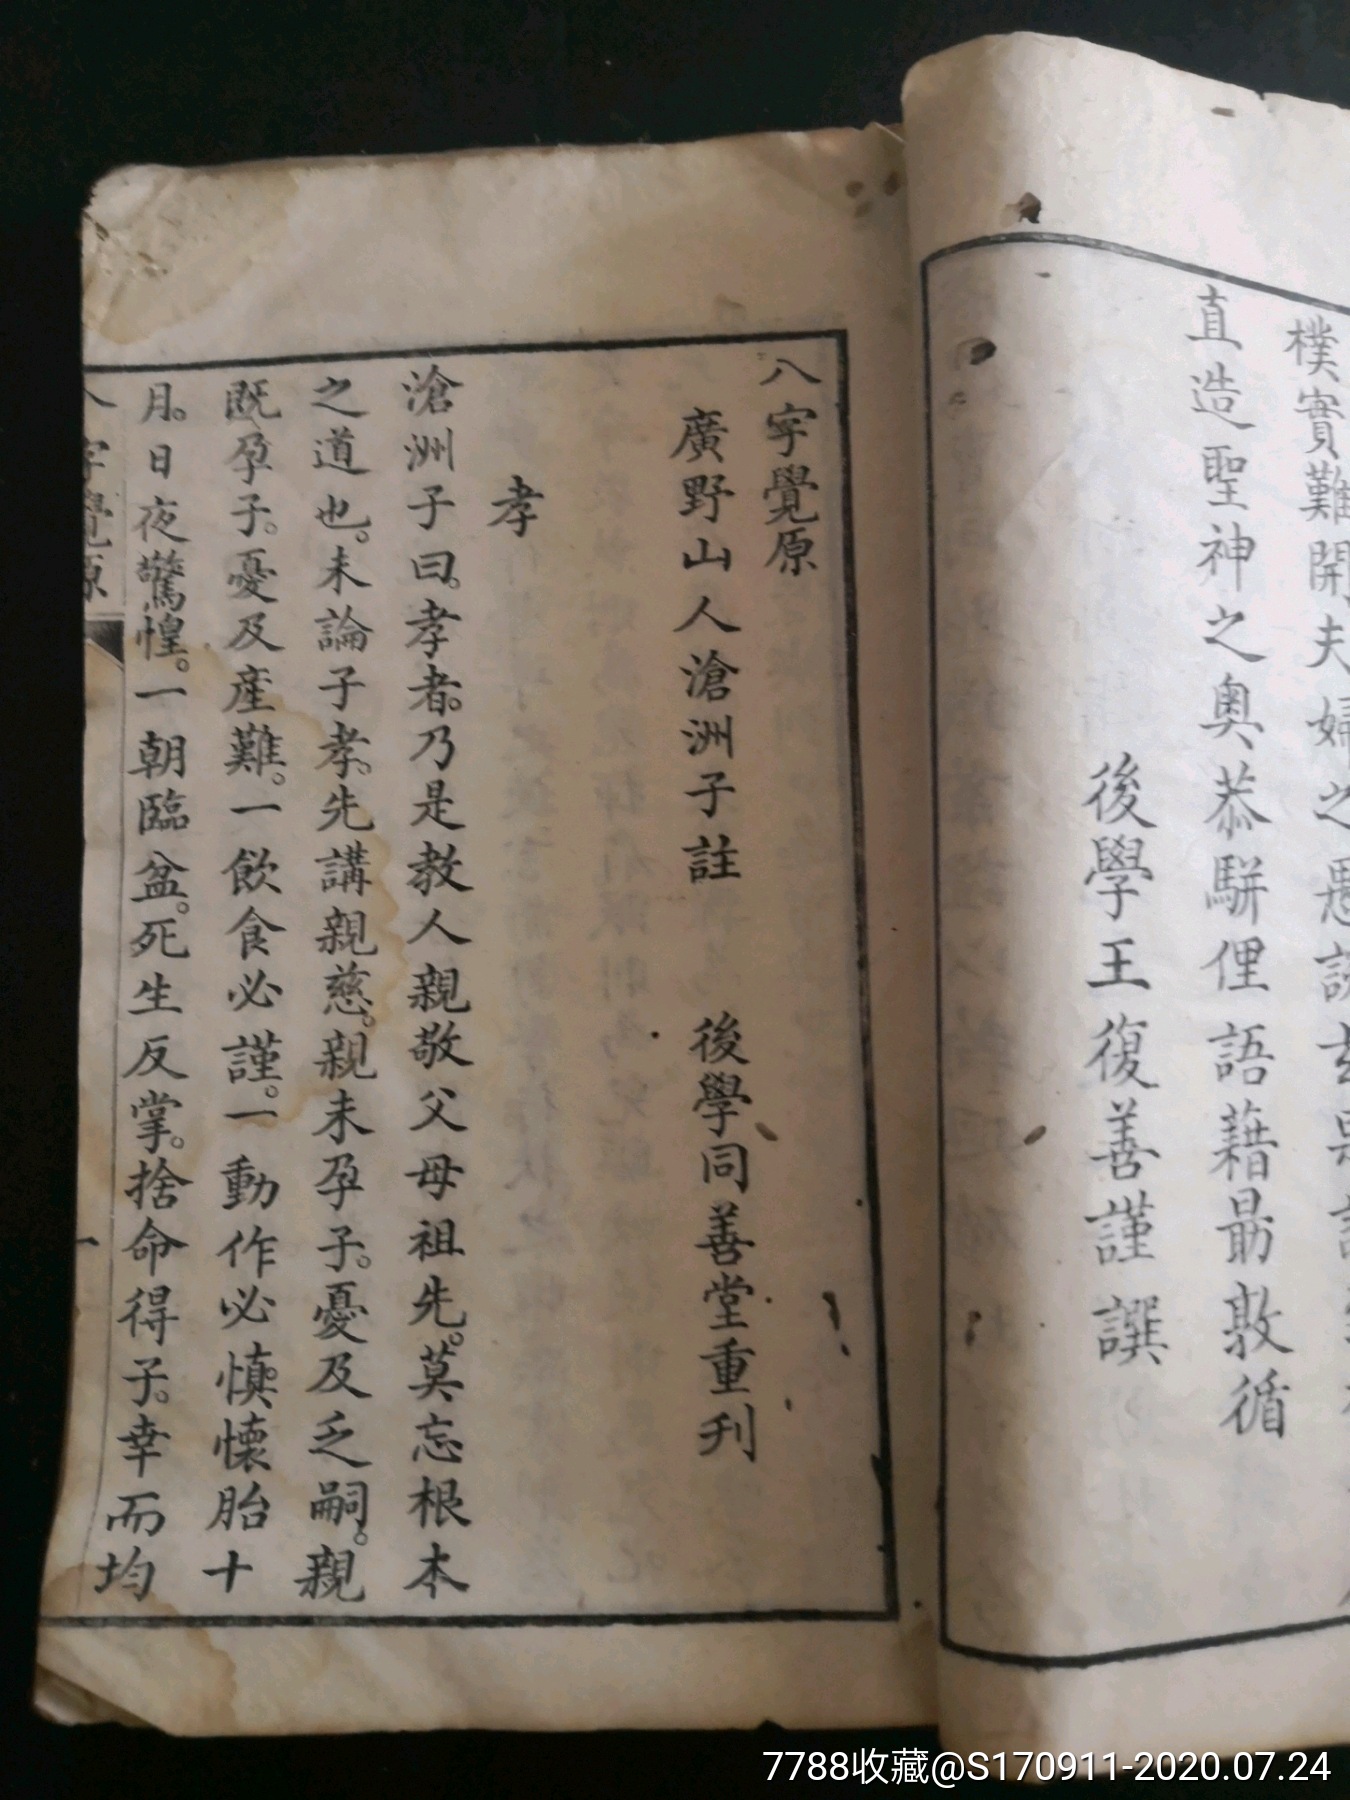 樸實難開夫婦之
直造聖神之奧恭駢俚語藉勗敦循
後學王復善謹譔
八字覺原
廣野山人滄洲子註 後學同善堂重刋
孝
滄洲子曰。孝者。乃是教人親敬父母祖先。莫忘根本
之道也。未論子孝。先講親慈。親未孕子。憂及乏嗣。親
既孕子。憂及産難。一飲食必謹。一動作必慎懷胎十
月。日夜驚惶。一朝臨盆。死生反掌。捨命得子。幸而均
八字覺原
一
7788收藏@S170911-2020.07.24